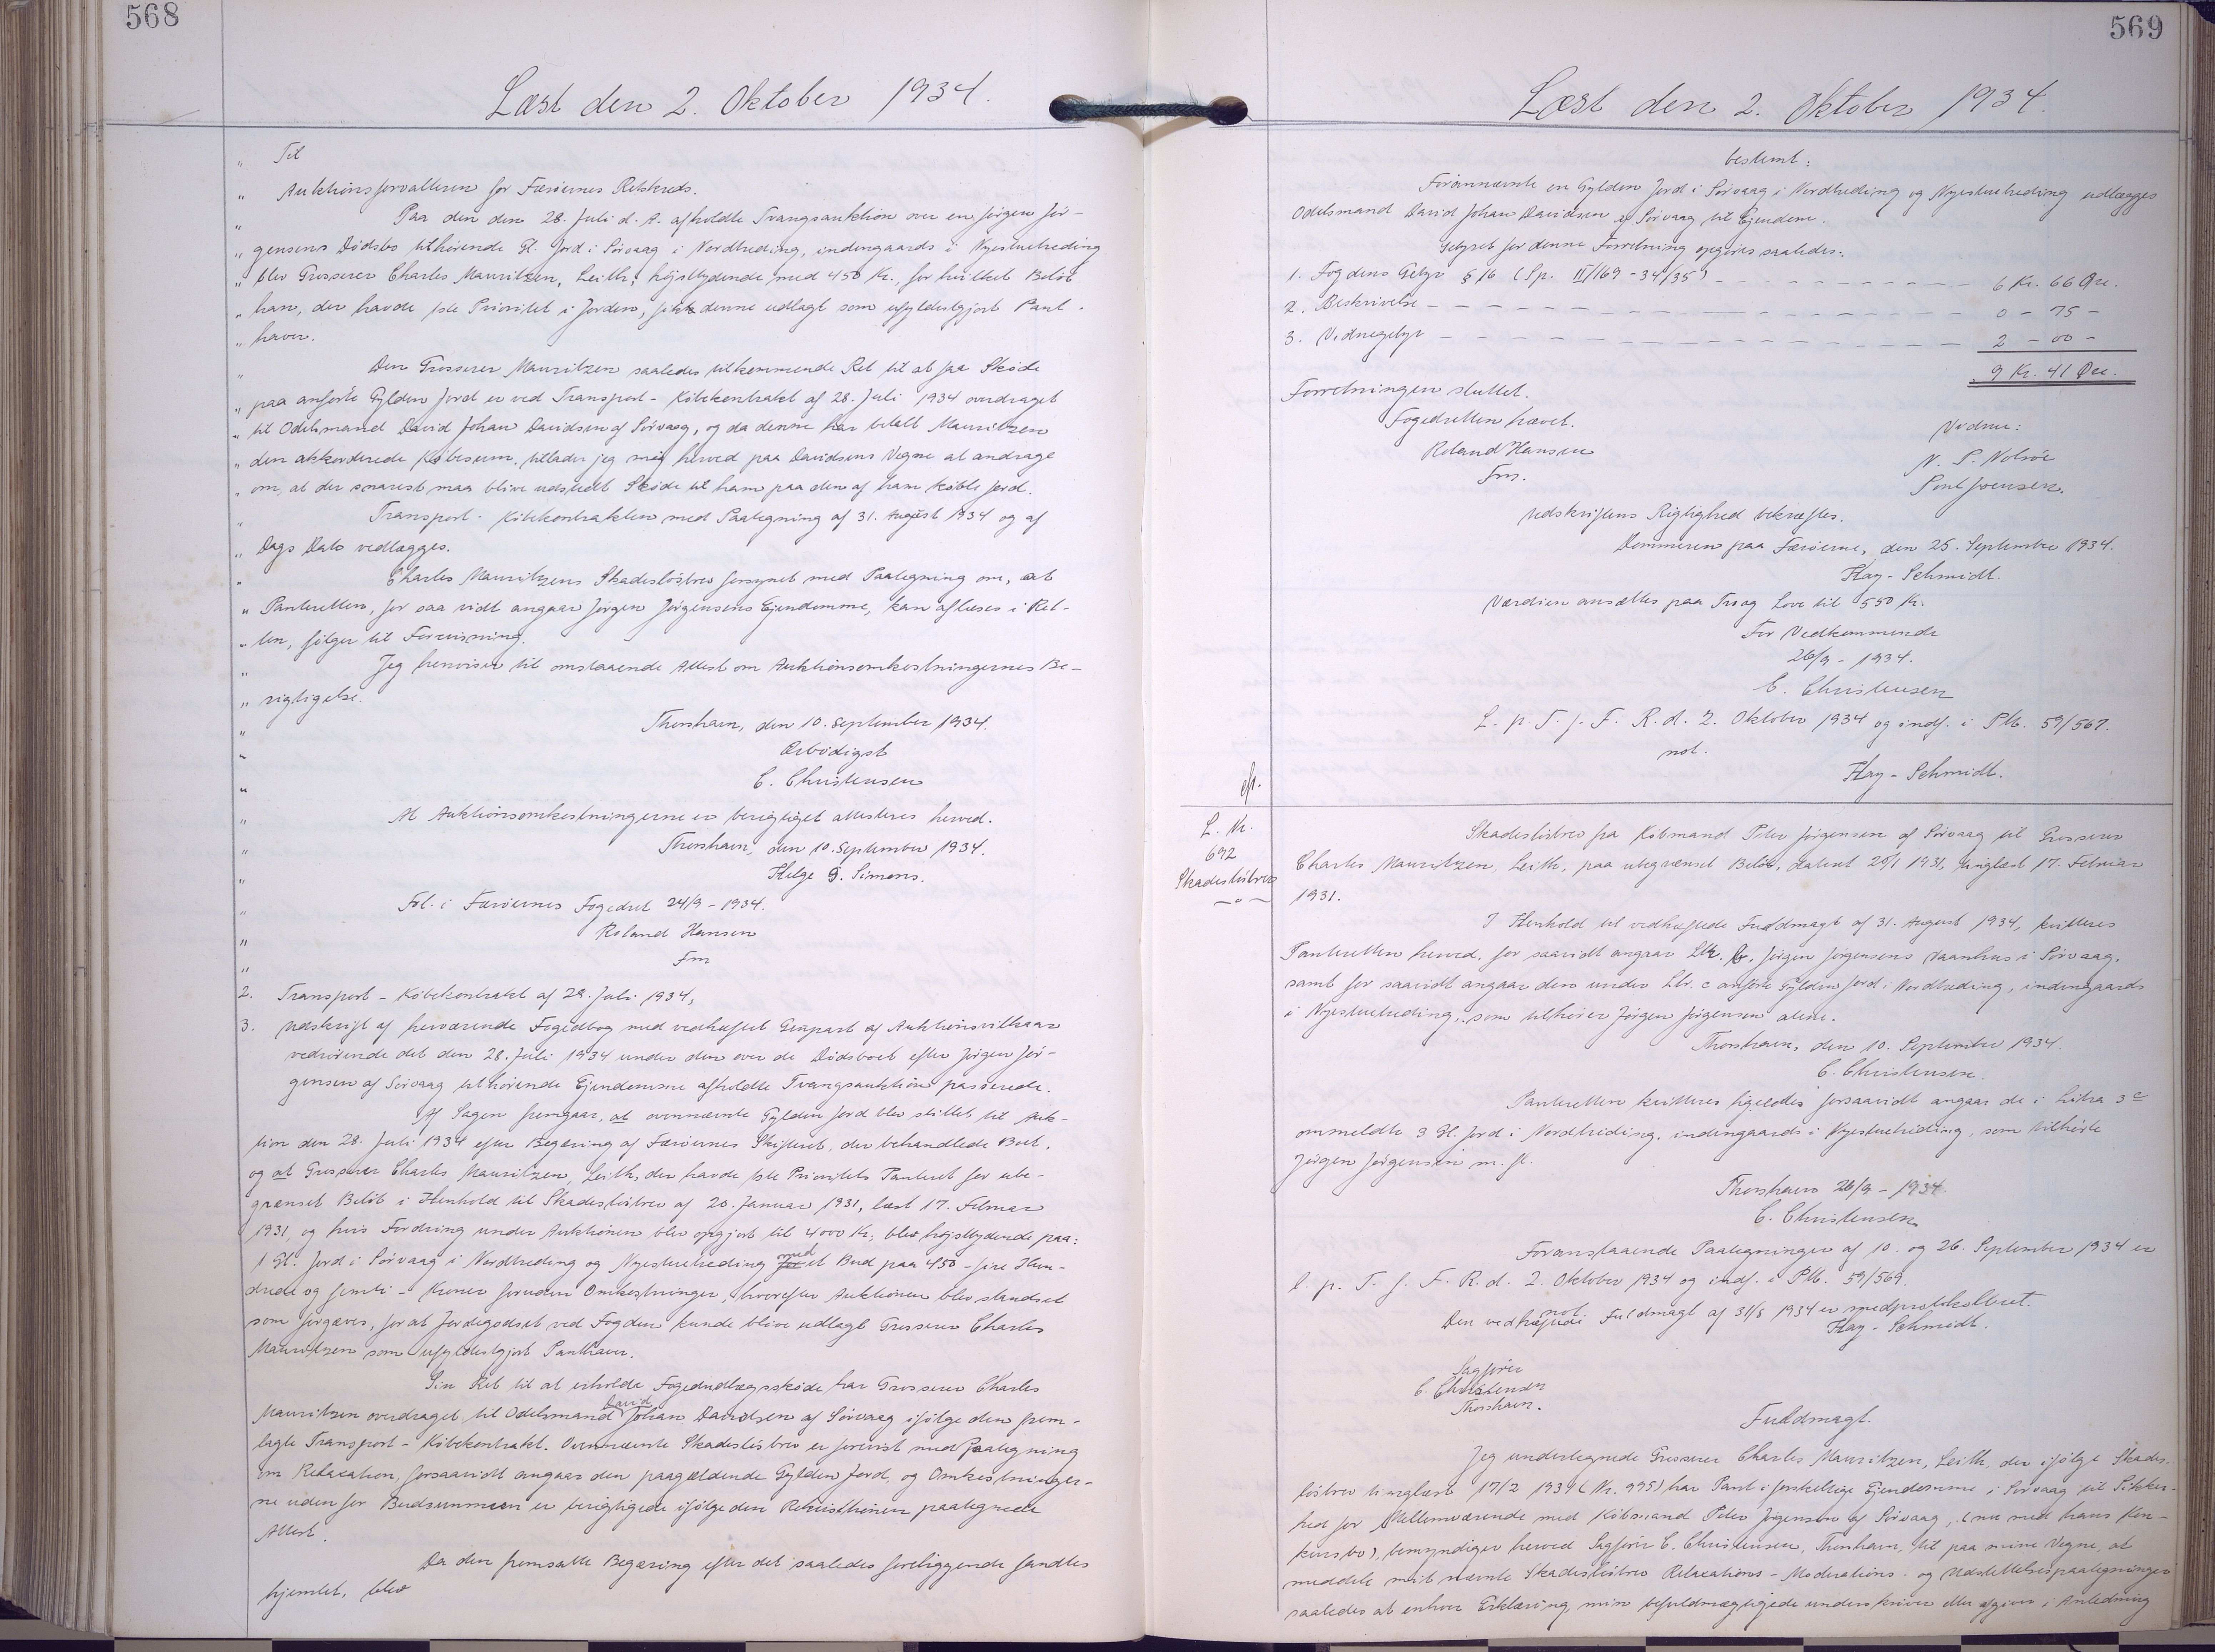 568
Læst den 2. Oktober 1934.
" Til
" Auktionsforvalteren for Færøernes Retskreds.
" Paa den den 28. Juli d. A. afholdte Tvangsauktion over en Jørgen Jør-
" gensens Dødsbo tilhørende Gl. Jord i Sörvaag i Nordheding, indengaards i Nyestueheding
" blev Grosserer Charles Mauritzen, Leith, højstbydende med 450 Kr., for hvilket Beløb
" han, der havde 1ste Prioritet i Jorden, fik denne udlagt som ufyldestgjort Pant-
" haver.
" Den Grosserer Mauritzen saaledes tilkommende Ret til at faa Skøde
" paa anførte Gylden Jord er ved Transport-Købekontrakt af 28. Juli 1934 overdraget
" til Odelsmand David Johan Davidsen af Sörvaag, og da denne har betalt Mauritzen
" den akkorderede Købesum, tillader jeg mig herved paa Davidsens Vegne at andrage
" om, at der snarest maa blive udstedt Skøde til ham paa den af ham købte Jord.
" Transport-Købekontrakten med Paategning af 31. August 1934 og af
" Dags Dato vedlægges.
" Charles Mauritzens Skadesløsbrev forsynet med Paategning om, at
" Panteretten, for saa vidt angaar Jørgen Jørgensens Ejendomme, kan aflæses i Ret-
" ten, følger til Forevisning.
" Jeg henviser til omstaaende Attest om Auktionsomkostningernes Be-
" rigtigelse.
" Thorshavn, den 10. September 1934.
" Ærbödigst
" C. Christensen
" At Auktionsomkostningerne er berigtiget attesteres herved.
" Thorshavn, den 10. September 1934.
" Helge G. Simons.
" Fol. i Færøernes Fogedret 24/9 - 1934.
" Roland Hansen
" Fm
2. Transport-Købekontrakt af 29. Juli 1934,
3. Udskrift af herværende Fogedbog med vedhæftet Genpart af Auktionsvilkaar
vedrørende det den 28. Juli 1934 under den over de Dødsboet efter Jørgen Jør-
gensen af Sörvaag tilhørende Ejendomme afholdte Tvangsauktion passerede.
Af Sagen fremgaar, at ovennævnte Gylden Jord blev stillet til Auk-
tion den 28. Juli 1934 efter Begæring af Færøernes Skifteret, der behandlede Boet,
og at Grosserer Charles Mauritzen, Leith, der havde 1ste Prioritets Panteret for ube-
grænset Beløb i Henhold til Skadesløsbrev af 20. Januar 1931, læst 17. Februar
1931, og hvis Fordring under Auktionen blev opgjort til 4000 Kr., blev højstbydende paa:
1 Gl. Jord i Sörvaag i Nordheding og Nyestueheding for med et Bud paa 450 - fire Hun-
drede og femti - Kroner foruden Omkostninger, hvorefter Auktionen blev standset
som forgæves, for at Jordegodset ved Fogden kunde blive udlagt Grosserer Charles
Mauritzen som ufyldestgjort Panthaver.
Sin Ret til at erholde Fogedudlægsskøde har Grosserer Charles
Mauritzen overdraget til Odelsmand David Johan Davidsen af Sörvaag ifølge den frem-
lagte Transport-Købekontrakt. Ovennævnte Skadesløsbrev er forevist med Paategning
om Relaxation, forsaavidt angaar den paagældende Gylden Jord, og Omkostninger-
ne uden for Budsummen er berigtigede ifølge den Rekvisitionen paategnede
Attest.
Da den fremsatte Begæring efter det saaledes foreliggende fandtes
hjemlet, blev
569
Læst den 2. Oktober 1934.
bestemt:
Forannævnte en Gylden Jord i Sörvaag i Nordheding og Nyestueheding udlægges
Odelsmand David Johan Davidsen af Sörvaag til Ejendom.
Gebyret for denne Forretning opgøres saaledes:
1. Fogdens Gebyr § 16 (Sp. II/169 - 34/35) 6 Kr. 66 Øre.
2. Beskrivelse 0 - 75 -
3. Vidnegebyr 2 - 00 -
9 Kr. 41 Øre.
Forretningen sluttet.
Fogedretten hævet.
Roland Hansen
Fm.
Vidner:
N. P. Nolsöe
Poul Joensen.
Udskriftens Rigtighed bekræftes.
Dommeren paa Færøerne, den 25. September 1934.
Hay-Schmidt.
Værdien ansættes paa Tro og Love til 550 Kr.
For Vedkommende
26/9 - 1934.
C. Christensen
L. p. T. f. F. R. d. 2. Oktober 1934 og indf. i Ptb. 59/567.
not.
Hay-Schmidt.
L. Nr.
692
Skadesløsbrev
Skadesløsbrev fra Købmand Peter Jørgensen af Sörvaag til Grosserer
Charles Mauritzen, Leith, paa ubegrænset Beløb, dateret 20/1 1931, tinglæst 17. Februar
1931.
I Henhold til vedhæftede Fuldmagt af 31. August 1934, kvitteres
Panteretten herved, for saavidt angaar Jørgen Jørgensens Vaanhus i Sörvaag,
samt for saavidt angaar den under Ltr. c anførte Gylden Jord i Nordheding, indengaards
i Nyestueheding, som tilhører Jørgen Jørgensen alene.
Thorshavn, den 10. September 1934.
C. Christensen.
Panteretten kvitteres ligeledes forsaavidt angaar de i Litra 3c
ommeldte 3 Gl. Jord i Nordheding, indengaards i Nyestueheding, som tilhørte
Jørgen Jørgensen m. fl.
Thorshavn 26/9 - 1934.
C. Christensen
Foranstaaende Paategninger af 10. og 26. September 1934 er
l. p. T. f. F. R. d. 2. Oktober 1934 og indf. i Ptb. 59/569.
not.
Den vedhæftede Fuldmagt af 31/8 1934 er medprotokolleret.
Hay-Schmidt.
Sagfører
C. Christensen
Thorshavn.
Fuldmagt.
Jeg undertegnede Grosserer Charles Mauritzen, Leith, der ifølge Skades-
løsbrev tinglæst 17/2 1931 (Nr. 995) har Pant i forskellige Ejendomme i Sörvaag til Sikker-
hed for Mellemværende med Købmand Peter Jørgensen af Sörvaag, (nu med hans Kon-
kursbo), bemyndiger herved Sagfører C. Christensen, Thorshavn, til paa mine Vegne, at
meddele mit nævnte Skadesløsbrev Relaxations-Moderations- og Udslettelsespaategninger
saaledes at enhver Erklæring, min befuldmægtigede underskriver eller afgiver i Anledning